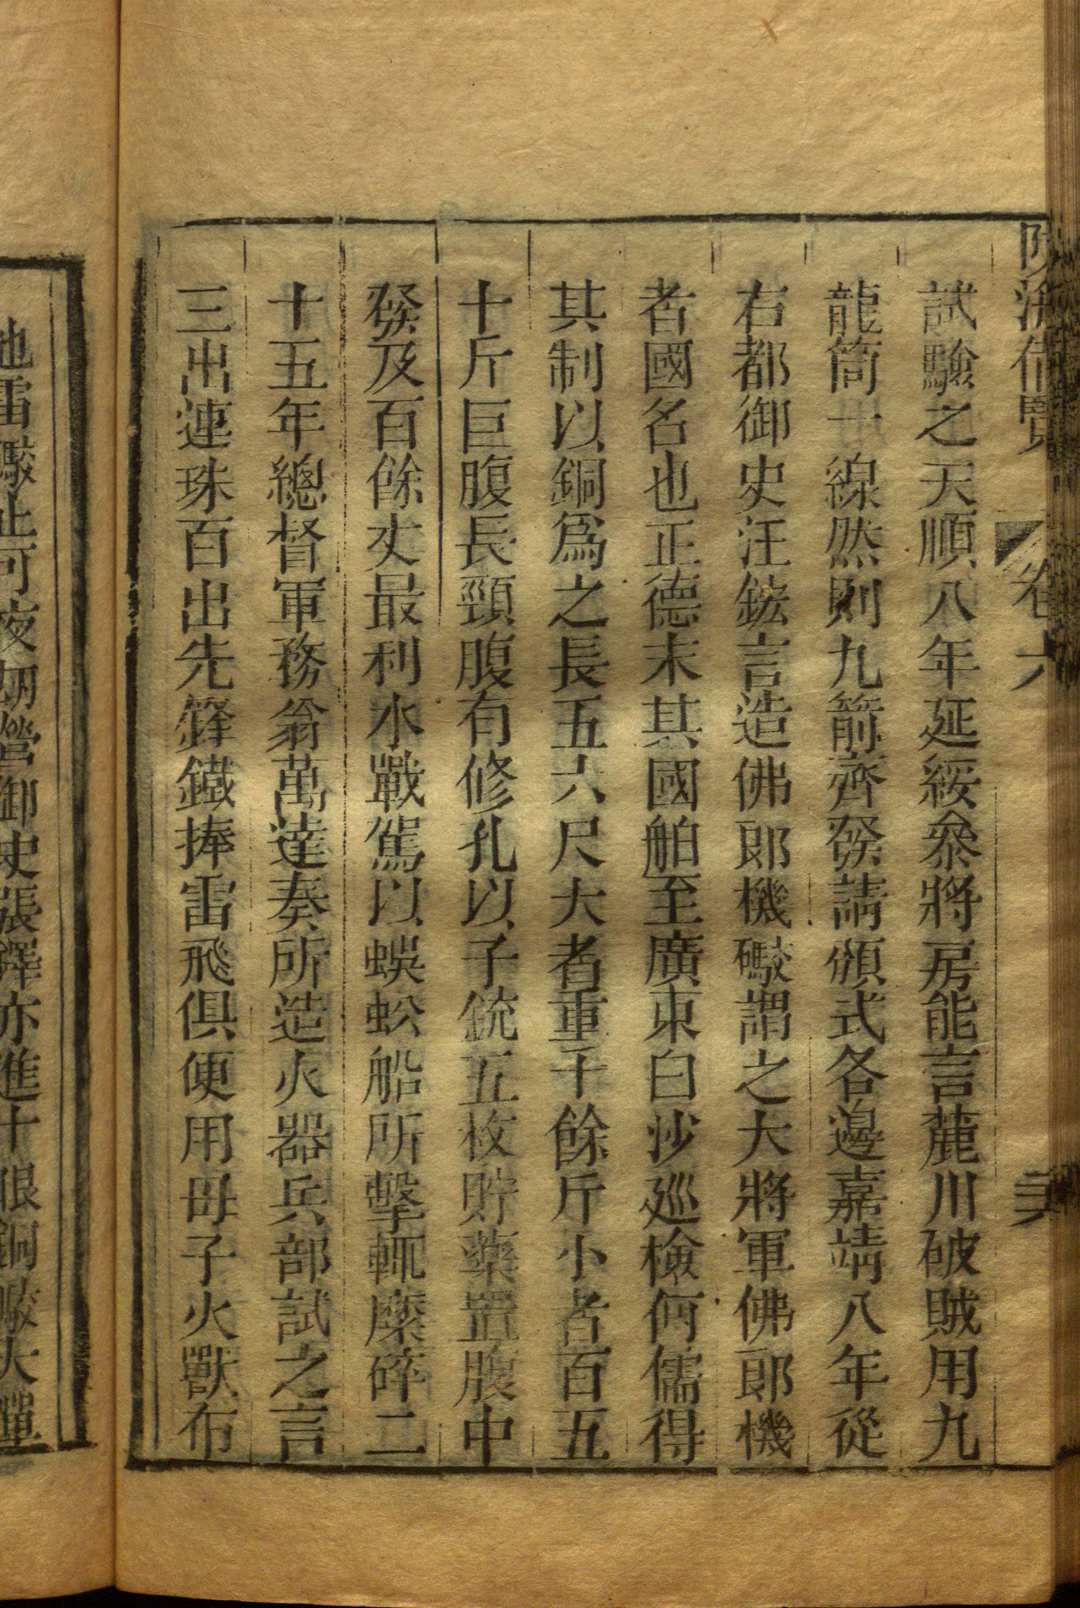 陔海借覽 卷六 
試驗之天順八年延綏叅將房能言麓川破賊用九
龍筒一線然則九箭齊發請頒式各邊嘉靖八年從
右都御史汪鋐言造佛郎機礮謂之大將軍佛郎機
者國名也正德末其國舶至廣東白沙巡檢何儒得
其制以銅爲之長五六尺大者重千餘斤小者百五
十斤巨腹長頸腹有修孔以子銃五枚貯藥置腹中
發及百餘丈最利水戰駕以蜈蚣船所擊輒糜碎二
十五年總督軍務翁萬達奏所造火器兵部試之言
三出連珠百出先鋒鐵捧雷飛俱便用毋子火獸布
地雷礮止可夜刼營御史張鐸亦進十眼銅礮大彈